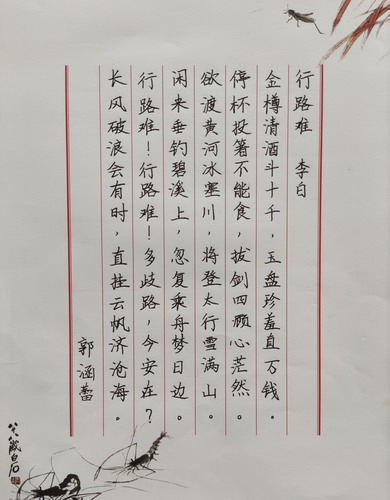 行路难 李白
金樽清酒斗十千，玉盘珍羞直万钱。
停杯投箸不能食，拔剑四顾心茫然。
欲渡黄河冰塞川，将登太行雪满山。
闲来垂钓碧溪上，忽复乘舟梦日边。
行路难！行路难！多歧路，今安在？
长风破浪会有时，直挂云帆济沧海。
郭涵蕾
八八岁白石